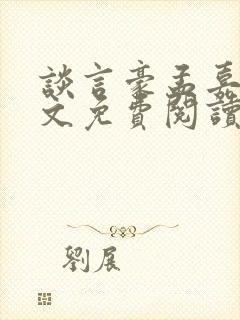 談言豪孟嘉
文免費閱讀
劉展